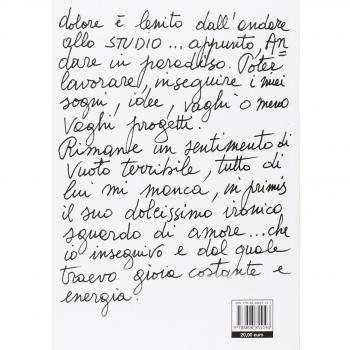 dolore è lenito dall'andare
allo STUDIO... appunto, An=
dare in paradiso. Poter
lavorare, inseguire i miei
sogni, idee, vaghi o meno
vaghi progetti.
Rimane un sentimento di
vuoto terribile, tutto di
lui mi manca, in primis
il suo dolcissimo ironico
sguardo di amore... che
io inseguivo e dal quale
traevo gioia costante e
energia.
20,00 euro